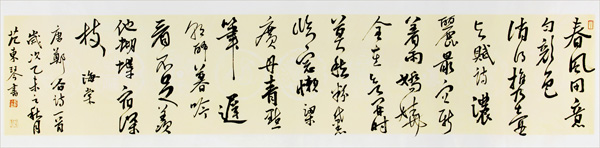 春風用意
勻顏色
消得携壺
與賦詩濃
麗最宜新
着雨嬌嬈
全在欲開時
莫愁粉黛
臨窗懶梁
廣丹青點
筆遲
朝醉暮吟
看不足羡
他蝴蝶宿深
枝 海棠
唐鄭谷詩一首
歲次乙未之秋月
范東琴書